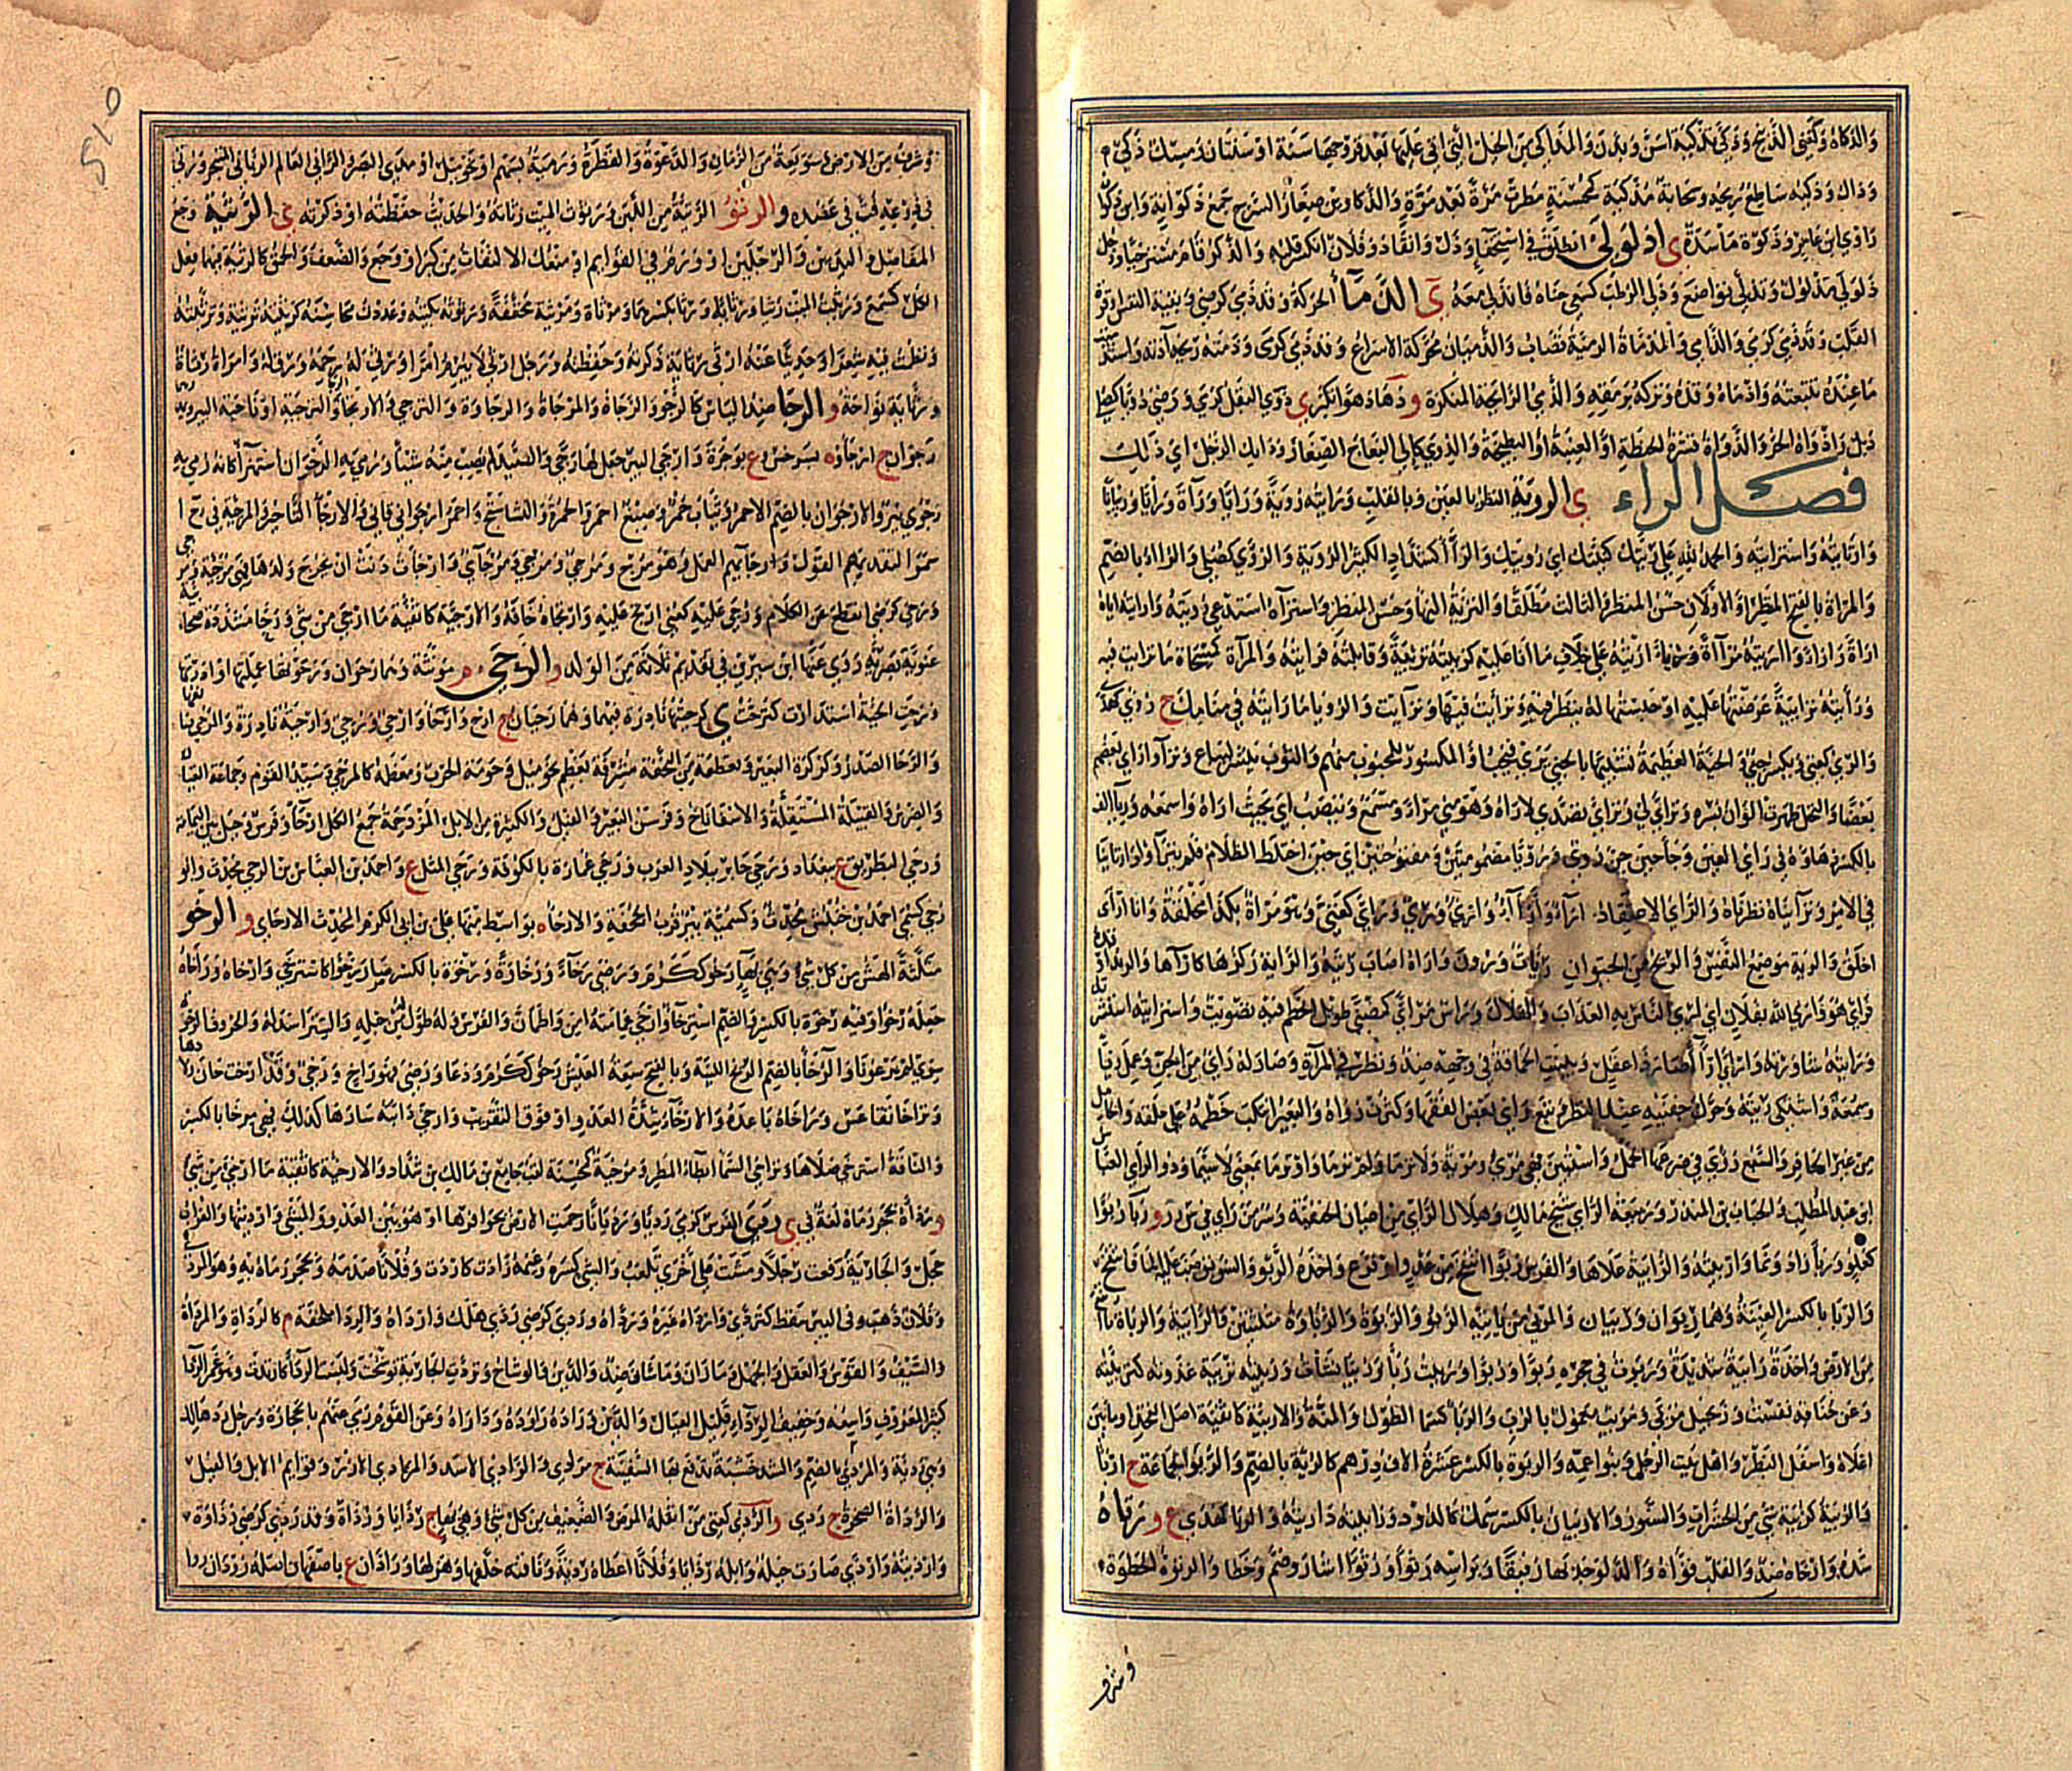 والذكاة وكغني الذبح وذكى تذكية اسن وبدن والمذاكي من الخيل التي اتى عليها بعد قروحها سنة او سنتان ومسك ذكي
وذاك وذكية ساطع ريحه وسحابة مذكية كمحسنة مطرت مرة بعد مرة والذكاوين صغار السرح جمع ذكوانة وابن ذكوان
راوي ابن عامر وذكوة مأسدة ى اذلولى انطلق في استخفاء وذل وانقاد وفلان انكسر قلبه والذكر قام مسترخيا ورجل
ذلولى مذلول وتذلى تواضع وذلى الرطب كسعى جناه فانذلى معه ى الذماء الحركة وقد ذمى كرضي وبقية النفس او قوة
القلب وقد ذمى كرمى والذامي والمذماة الرمية تصاب والذميان محركة الاسراع وقد ذمى كرمى وذمته ريحه آذته واستذميت
ما عنده تتبعته واذماه وقذه وتركه برمقه والذمى الرائحة المنكرة و ذها ذهوا تكبر ى ذوى البقل كرمى ورضي ذويا كصلي
ذبل واذواه الحر والذواة قشرة الحنظة او العنبة او البطيخة والذوى كالى النعاج الصغار وذايك الرجل اي ذلك
فصل الراء ى الروية النظر بالعين وبالقلب ورايته روية ورايا وراءة ورأية ورئيانا
وارتأيته واسترأيته والحمد لله على ريتك كنيتك اي رويتك والرآء كشداد الكثير الروية والرؤي كصلي والرواء بالضم
والمرآة بالفتح المنظر او الاولان حسن المنظر والثالث مطلقا والترئية البهاء وحسن المنظر واسترآه استدعى رويته واريته اياه
اراءة واراء وراأيته مراآة ورئاء اريته على خلاف ما انا عليه كرأيته ترئية وقابلته فرايته والمرآة كمسحاة ما ترايت فيه
ورأيته ترئية عرضتها عليه او حبستها له ينظر فيها وترأيت فيها وترآيت والرويا ما رايته في منامك ج رؤى كهدى
والرئي كغني ويكسر جني والحية العظيمة تشبيها بالجني يرى فيحب او المكسور للمحبوب منهم والثوب ينشر ليباع وتراأوا راى بعضهم
بعضا والنخل ظهرت الوان بسره وتراءى لي وترأى تصدى لاراه وهو مني مرأى ومسمع وينصب اي بحيث اراه واسمعه ورئاء الف
بالكسر زهاوه في راي العين وجا حين جن روى ورويا مضمومتين ورأي ورأيا مفتوحتين اي حين اختلط الظلام فلم يتراأوا وارتاينا
في الامر وتراايناه نظرناه والراي الاعتقاد ج آراء وارآء وارؤ ورى ورئي كغني ومتو مرآة بكذا مخلقة وانا ارأى
اخلق والرئة موضع النفس والريح من الحيوان ج رئات ورئون ورآه اصاب رئته والراية ركزها كارآها والرند اوراه
فراى هو وارى الله بفلان اي ارى الناس به العذاب والهلاك وراس مرأى كمضنى طويل الخطم فيه تصويت واستراته استشرته
ورايته شاورته وارأى ارآء صار ذا عقل وتبينت الحماقة في وجهه ضد ونظر في المرآة وصار له رئي من الجن وعمل رئاء
وسمعة واشتكى رئته وحرك جفنيه عند النظر وتبع راي بعض الفقها وكثرت رؤاه والبعير انتكب خطمه على حلقه والحامل
من غير الحافر والسبع رؤي في ضرعها الحمل واستبين فهي مرء ومرئية ولا ترما ولم ترما واو ترما بمعنى لا سيما وذو الراي العباس
ابن عبد المطلب والحباب بن المنذر وربيعة الراي شيخ مالك وهلال الراي من اعيان الحنفية وسر من راى في س ر ر و ربا ربوا
كعلو ورباء زاد ونما واربيته والرابية علاها والفرس ربوا انتفخ من عدو او فزع واخذه الربو والسويق صب عليه الما فانتفخ
والربا بالكسر العينة وهما ربوان وربيان والمربي من ياتيه الربو والربوة والرباوة مثلثتين والرابية والرباة ما ارتفع
من الارض واخذة رابية شديدة وربوت في حجره ربوا وربوا وربيت رباء وربيا نشأت وربيته تربية غذوته كتربيته
وعن خناقه نفست وزنجبيل مربى ومربب معمول بالرب والربا كسما الطول والمنة والاربية كاثفية اصل الفخذ او ما بين
اعلاه واسفل البطن واهل بيت الرجل وبنو عمه والربوة بالكسر عشرة الاف درهم كالربة بالضم والربو الجماعة ج ارباء
والربية كزبية شي من الحشرات والسنور والاربيان بالكسر سمك كالدود ورابيته داريته والربى كهدى ع و رتاه
شده وارخاه ضد والقلب قواه والدلو جذبها رفيقا وبراسه رتوا ورتوا اشار وضم وخطا والرتوة الخطوة
وشرف
وشرف من الارض وسويعة من الزمان والدعوة والقطرة ورمية بسهم او نحو ميل او مدى البصر والراتي العالم الرباني المتبحر ورتي
في ذرعه كعني فت في عضده و الرثو الرثية من اللبن ورثوت الميت رثاته والحديث حفظته او ذكرته ى الرثية وجع
المفاصل واليدين والرجلين او ورم في القوائم او منعك الالتفات من كبر او وجع والضعف والحمق كالرثية فيهما وفعل
الكل كسمع ورثيت الميت رثيا ورثاء ورثاية بكسرهما ومرثاة ومرثية مخففة ورثوته بكيته وعددت محاسنه كرثيته ترثية وترثيته
ونظمت فيه شعرا وحديثا عنه ارثي رثاية ذكرته وحفظته ورجل ارثى لا يبرم امرا ورثي له رحمه ورق له وامراة رثاءة
ورثاية نواحة و الرجا ضد الياس كالرجو والرجاة والمرجاة والرجاوة والترجي والارتجا والترجية او ناحية البير ويمد وهما
رجوان ج ارجاء و ة بسرخس و ع بوجرة وارجى البير جعل لها رجى والصيد لم يصب منه شيئا ورمي به الرجوان استهزئ كانه رمي به
رجوي بئر والارجوان بالضم الاحمر وثياب حمر وصبغ احمر والحمرة والنشاستج واحمر ارجواني قاني والارجاء التاخير والمرجئة في ر ج ا
سموا لتقديمهم القول وارجائهم العمل وهو مرج ومرجئ ومرجي ومرجائي وارجات دنت ان يخرج ولدها فهي مرجئة ومرجية
ورجي كرضي انقطع عن الكلام ورجي عليه كعني ارتج عليه وارتجاه خافه والارجية كاثفية ما ارجى من شي ورجا مشددة صحابية
غنوية بصرية روى عنها ابن سيرين في تقديم ثلاثة من الولد و الرحى م مونثة وهما رحوان ورحوتها عملتها او ادرتها
ورحت الحية استدارت كترحت ى كرحيتها نادرة فيهما وهما رحيان ج ارح وارحاء وارحي ورحي ورحي وارحية نادرة والمرحي صانعها
والرحا الصدر وكركرة البعير وقطعة من النجفة مشرفة تعظم نحو ميل وحومة الحرب ومعظمه كالمرحى وسيد القوم وجماعة العيال
والضرس والقبيلة المستقلة والاسفاناخ وفرسن البعير والفيل والكثيرة من الابل المزدحمة جمع الكل ارحاء وفرس وجبل بين اليمامة والبصرة
ورحى البطريق ع ببغداد ورحى جابر ببلاد العرب ورحى عمارة بالكوفة ورحى المثل ع واحمد بن العباس بن الرحى محدث والو
رحي كسمي احمد بن خنبش محدث وكسمية بئر قرب الجحفة والارحاء ة بواسط منها علي بن ابي الكرم المحدث الارحاي و الرخو
مثلثة الهش من كل شي وهي بهاء رخو ككرم ورضي رخاء ورخاوة ورخوة بالكسر صار رخوا كاسترخى وارخاه وراخاه
جعله رخوا وفيه رخوة بالكسر والضم استرخاء وارخى عمامته امن واطمان والفرس وله طول من حبله والستر اسدله والحروف الرخوة
سوى لم يرعونا والرخاء بالضم الريح اللينة وبالفتح سعة العيش رخو ككرم ودعا ورضي فهو راخ ورخي وقد ارتخت حان ولادها
وتراخا تقاعس وراخاه باعده والارخاء شدة العدو او فوق التقريب وارخى دابته سارها كذلك فهي مرخاء بالكسر
والناقة استرخى صلاها وتراخى السما ابطاء المطر ومرخية كمحسنة لقب جامع بن مالك بن شداد والارخية كاثفية ما ارخي من شي
و رداه بحجر رماه لغة في ى ردى الفرس كرمى رديا ورديانا رجمت الارض بحوافرها او هو بين العدو والمشي وارديتها والغراب
حجل والجارية رفعت رجلا ومشت على اخرى تلعب والشي كسره وغنمه زادت كاردت وفلانا صدمه وبحجر رماه به وهو المردى
وفلان ذهب وفي البير سقط كتردى وارداه غيره ورداه وردى كرضي ردى هلك وارداه والردا ملحفة م كالرداة والمرداة
والسيف والقوس والعقل والجهل وما زان وما شان ضد والدين والوشاح وتردت الجارية توشحت ولبست الردا كارتدت وهو غمر الردا
كثير المعروف واسعه وخفيف الردا قليل العيال والدين وراداه راوده وداراه وعن القوم رمى عنهم بالحجارة ورجل رد هالك
وهي ردية والمردي بالضم والشد خشبة تدفع بها السفينة ج مرادي والرادي الاسد والمرادي الازر وقوائم الابل والفيل
والرداة الصخرة ج ردى و الرذي كغني من اثقله المرض والضعيف من كل شي وهي بهاء ج رذايا ورذاة وقد رذي كرضي رذاوة
وارذيته وارذى صارت خيله وابله رذايا وفلانا اعطاه رذية وناقته خلفها وهزلها وراذان ع باصفهان اصله روذان